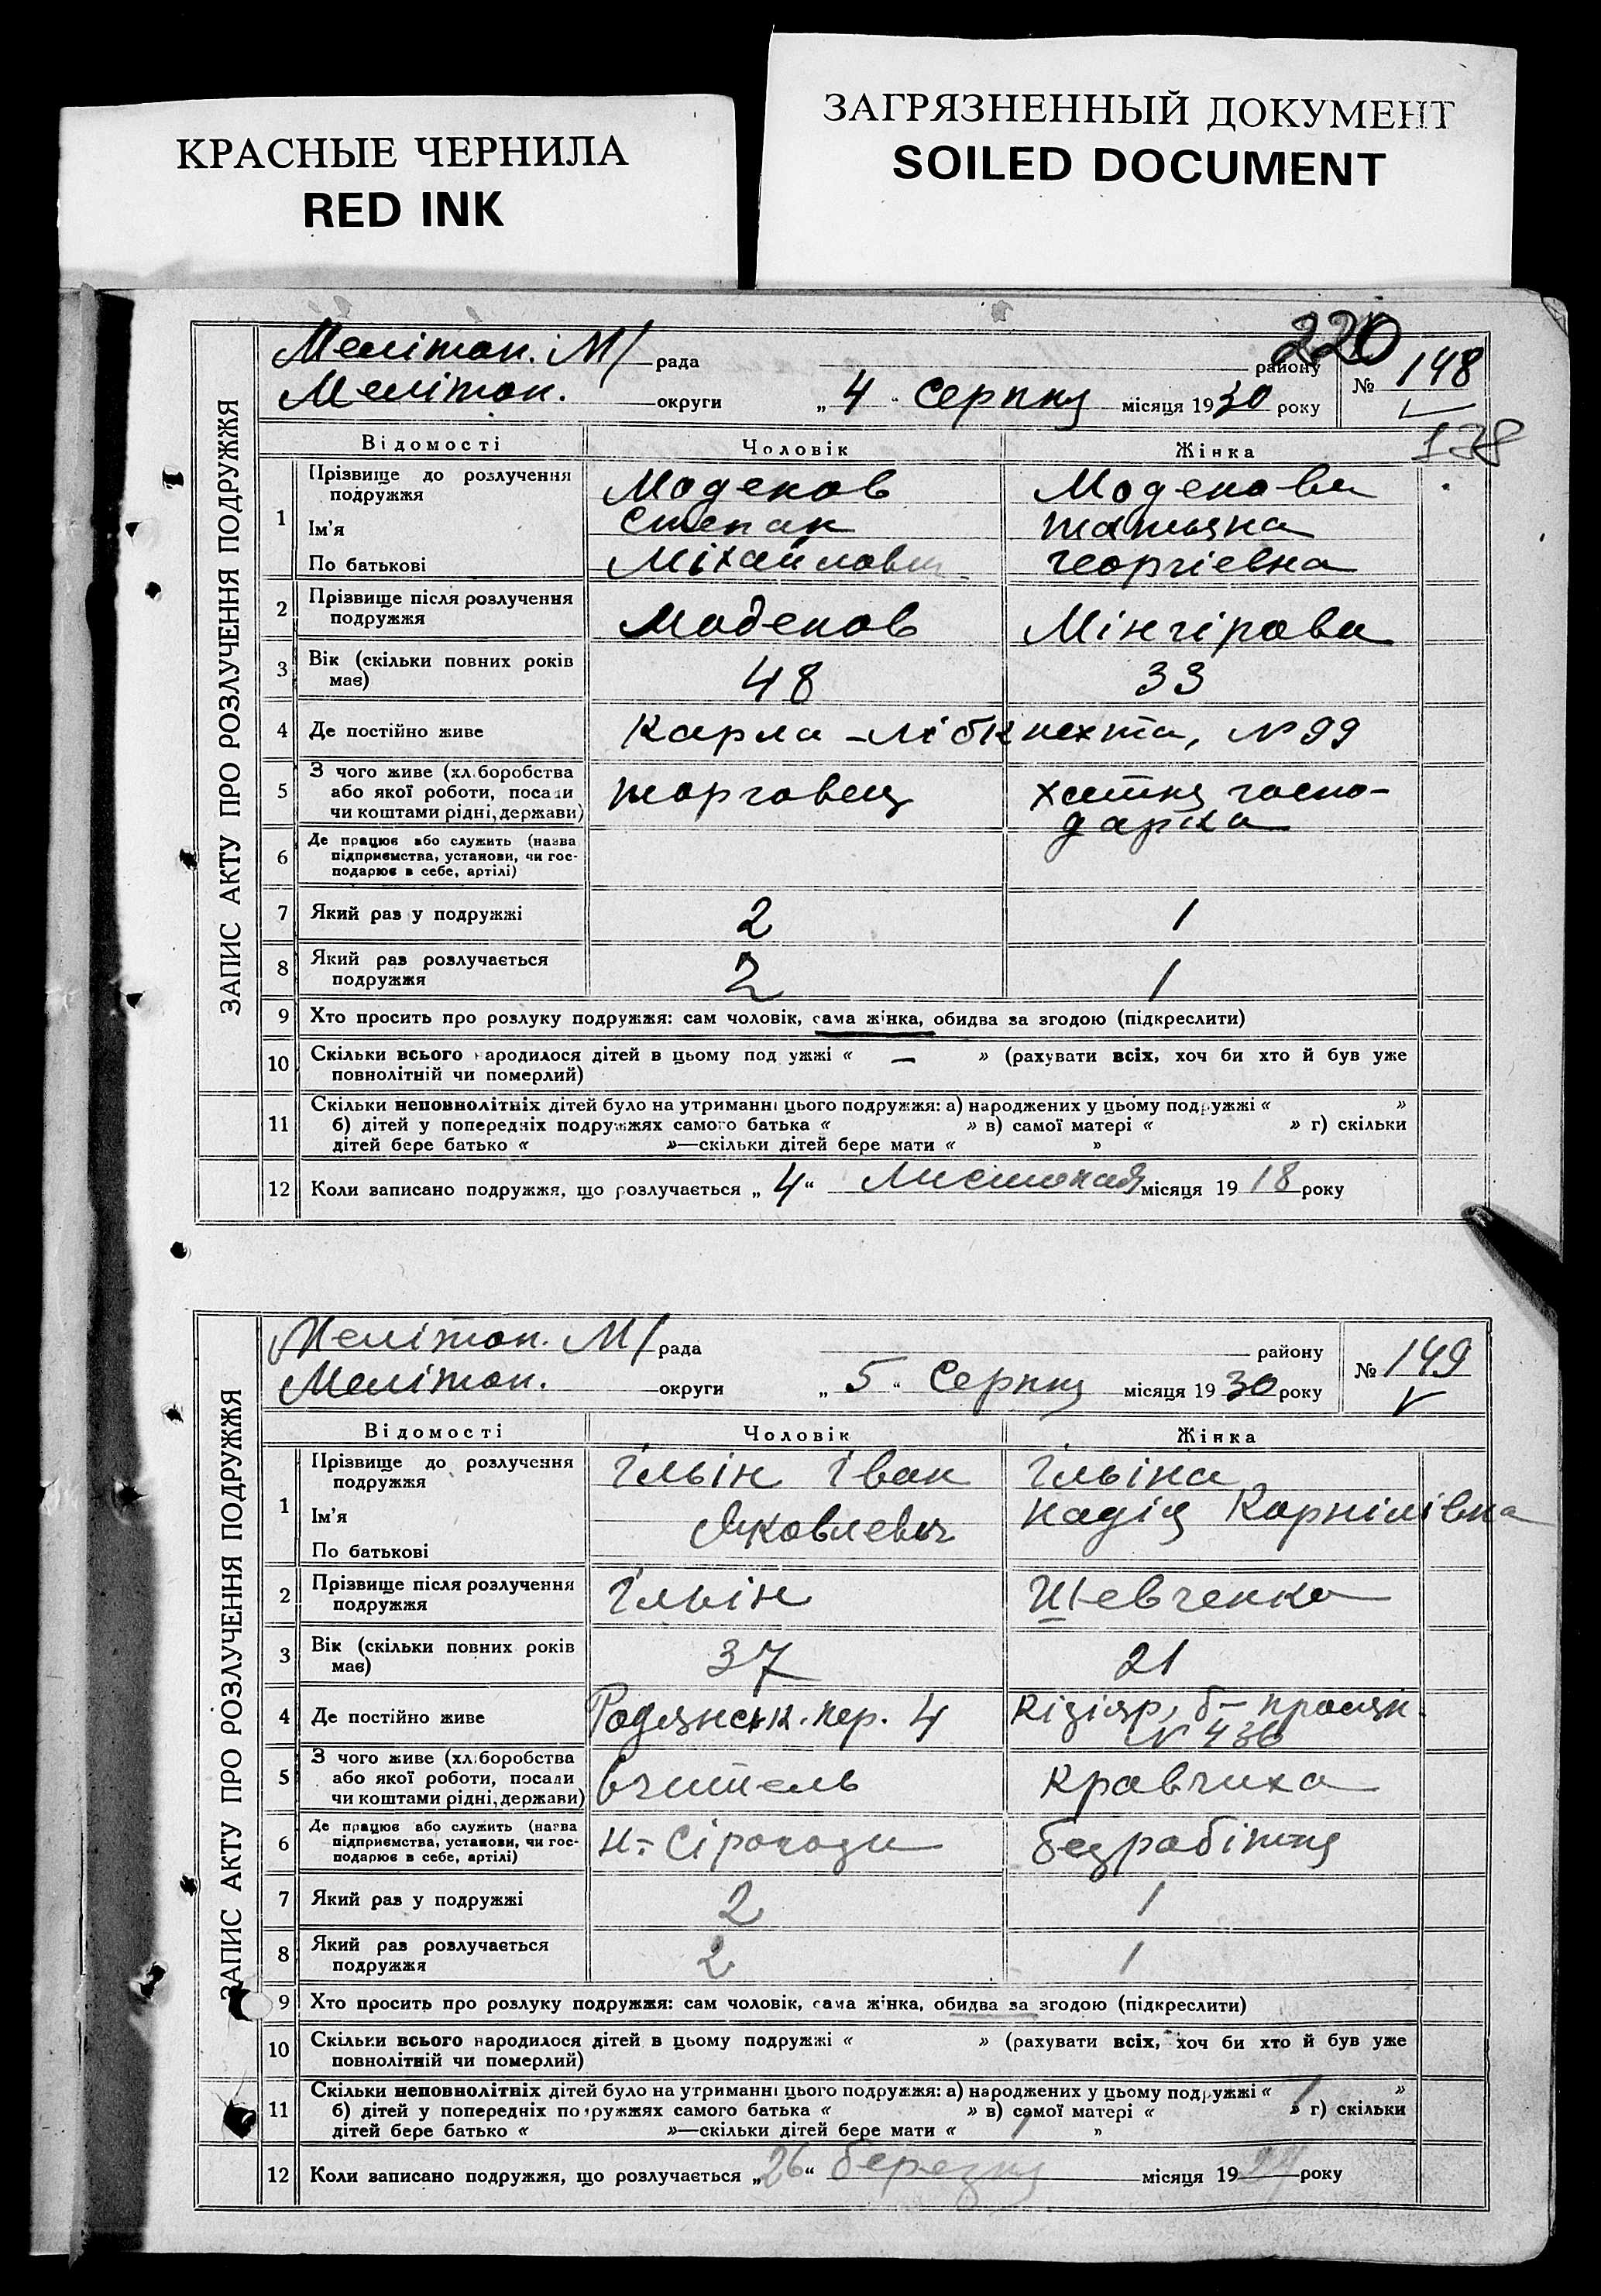 КРАСНЫЕ ЧЕРНИЛА
RED INK
ЗАГРЯЗНЕННЫЙ ДОКУМЕНТ
SOILED DOCUMENT
220
ЗАПИС АКТУ ПРО РОЗЛУЧЕННЯ ПОДРУЖЖЯ
Мелітоп. М/ рада району № 148
Мелітоп. округи „ 4 “ Серпня місяця 1930 року
138
Відомості Чоловік Жінка
1 Прізвище до розлучення подружжя Моденов Моденова
Ім'я Степан Татьяна
По батькові Міхайлович Георгіевна
2 Прізвище після розлучення
подружжя Моденов Мінгірова
3 Вік (скільки повних років
має) 48 33
4 Де постійно живе Карла-Лібкнехта, № 99
5 З чого живе (хл.боробства
або якої роботи, посади
чи коштами рідні, держави) торговец хатня госпо-
дарка
6 Де працює або служить (назва
підприємства, установи, чи гос-
подарює в себе, артілі)
7 Який раз у подружжі 2 1
8 Який раз розлучається
подружжя 2 1
9 Хто просить про розлуку подружжя: сам чоловік, сама жінка, обидва за згодою (підкреслити)
10 Скільки всього народилося дітей в цьому под ужжі « — » (рахувати всіх, хоч би хто й був уже
повнолітній чи померлий)
11 Скільки неповнолітніх дітей було на утриманні цього подружжя: а) народжених у цьому подружжі « »
б) дітей у попередніх подружжях самого батька « » в) самої матері « » г) скільки
дітей бере батько « »—скільки дітей бере мати « »
12 Коли записано подружжя, що розлучається „ 4 “ Листопад місяця 1918 року
ЗАПИС АКТУ ПРО РОЗЛУЧЕННЯ ПОДРУЖЖЯ
Мелітоп. М/ рада району № 149
Мелітоп. округи „ 5 “ Серпня місяця 1930 року
Відомості Чоловік Жінка
1 Прізвище до розлучення
подружжя Ільін Іван Ільіна
Ім'я Яковлевич Надія Корнілівна
По батькові
2 Прізвище після розлучення
подружжя Ільін Шевченко
3 Вік (скільки повних років
має) 37 21
4 Де постійно живе Радянськ. пер. 4 Кізіяр, б-
№ 436
5 З чого живе (хл.боробства
або якої роботи, посади
чи коштами рідні, держави) вчитель Кравчиха
6 Де працює або служить (назва
підприємства, установи, чи гос-
подарює в себе, артілі) Н.-Сірогози безробітня
7 Який раз у подружжі 2 1
8 Який раз розлучається
подружжя 2 1
9 Хто просить про розлуку подружжя: сам чоловік, сама жінка, обидва за згодою (підкреслити)
10 Скільки всього народилося дітей в цьому подружжі « » (рахувати всіх, хоч би хто й був уже
повнолітній чи померлий)
11 Скільки неповнолітніх дітей було на утриманні цього подружжя: а) народжених у цьому подружжі « 1 »
б) дітей у попередніх подружжях самого батька « » в) самої матері « » г) скільки
дітей бере батько « »—скільки дітей бере мати « 1 »
12 Коли записано подружжя, що розлучається „ 26 “ березня місяця 19 року